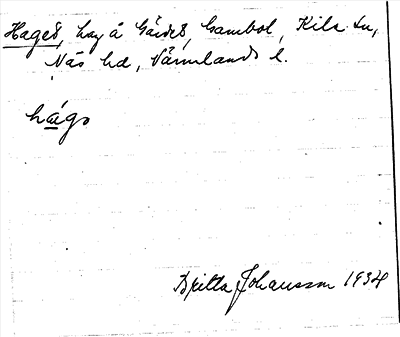 Hages, lag å Gärdet, Gambol, Kila sn,
Näs hd, Värmlands l.
hågs
Britta Johansson 1934